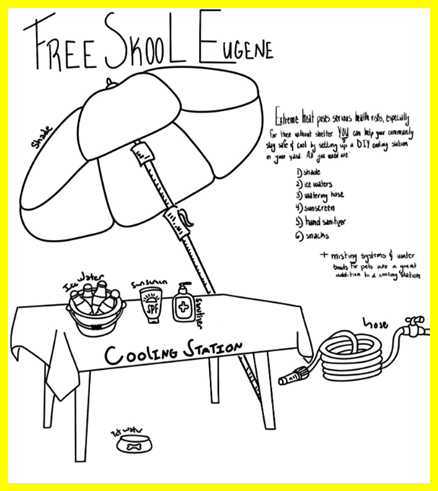 FREE SKOOL EUGENE
Shade
Extreme heat poses serious health risks, especially
for those without shelter. YOU can help your community
stay safe & cool by setting up a DIY cooling station
in your yard. All you need are
1) shade
2) ice waters
3) watering hose
4) sunscreen
5) hand sanitizer
6) snacks
+ misting systems & water
bowls for pets are a great
addition to a cooling station
Ice Water
Sunscreen
SPF
Sanitizer
hose
COOLING STATION
Pet water